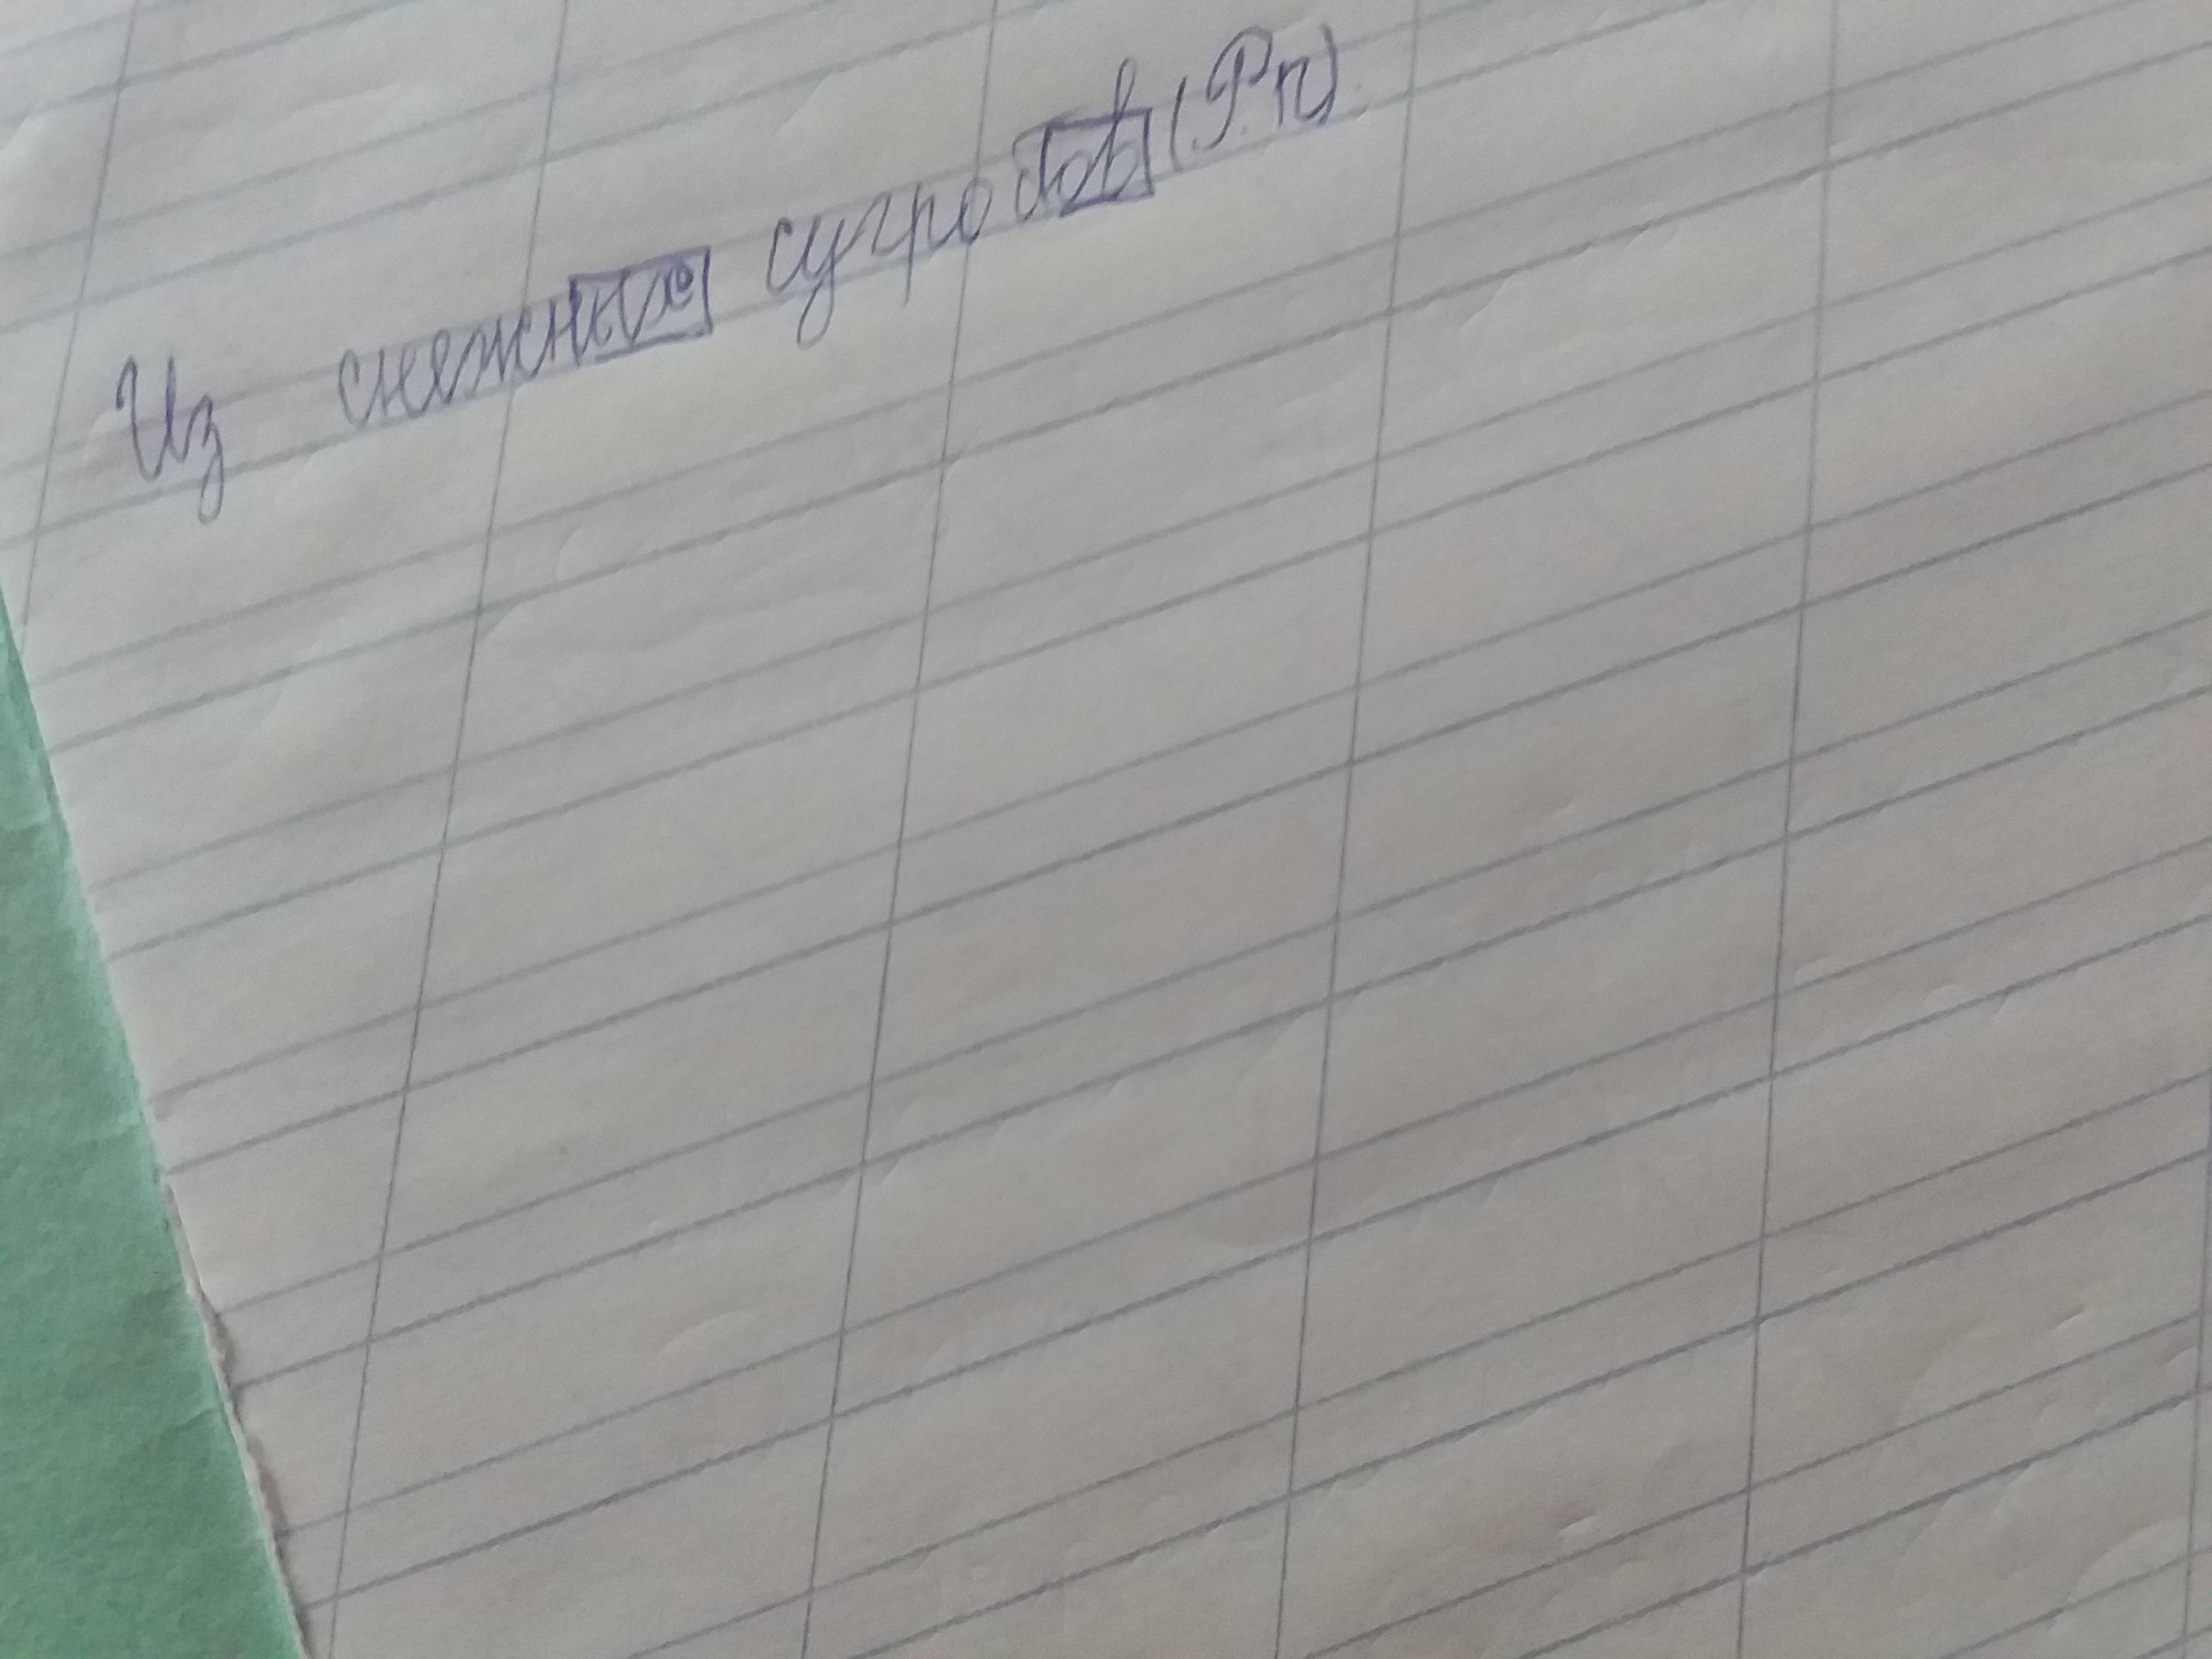 Из снежных сугробов (Р.п)